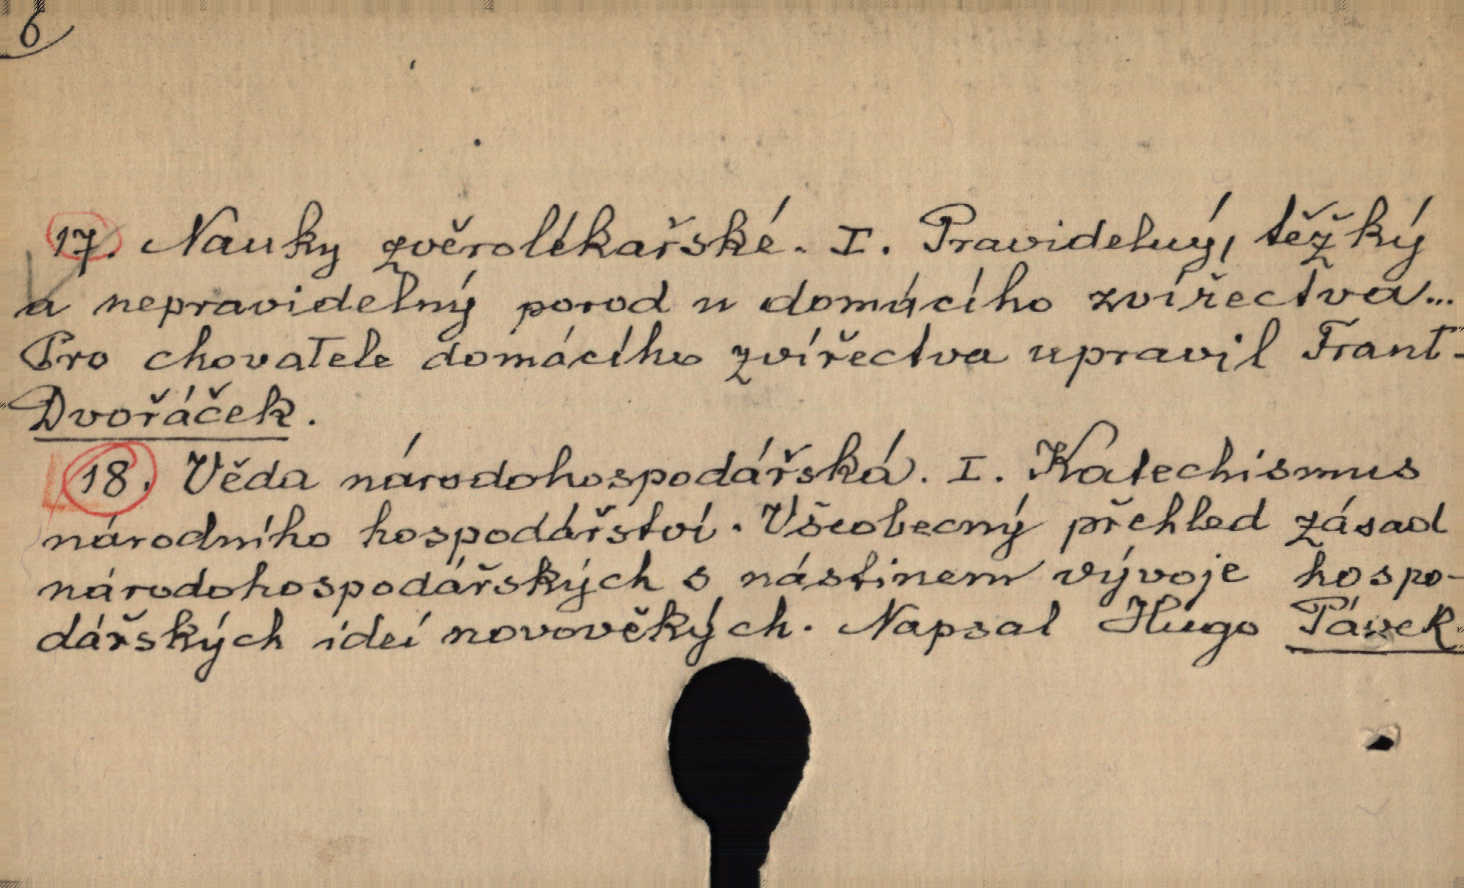 6
17. Nauky zvěrolékařské. I. Pravidelný, těžký
a nepravidelný porod u domácího zvířectva...
Pro chovatele domácího zvířectva upravil Frant-
Dvořáček.
18. Věda národohospodářská. I. Katechismus
národního hospodářství. Všeobecný přehled zásad
národohospodářských s nástinem vývoje hospo-
dářských ideí novověkých. Napsal Hugo Pávek.